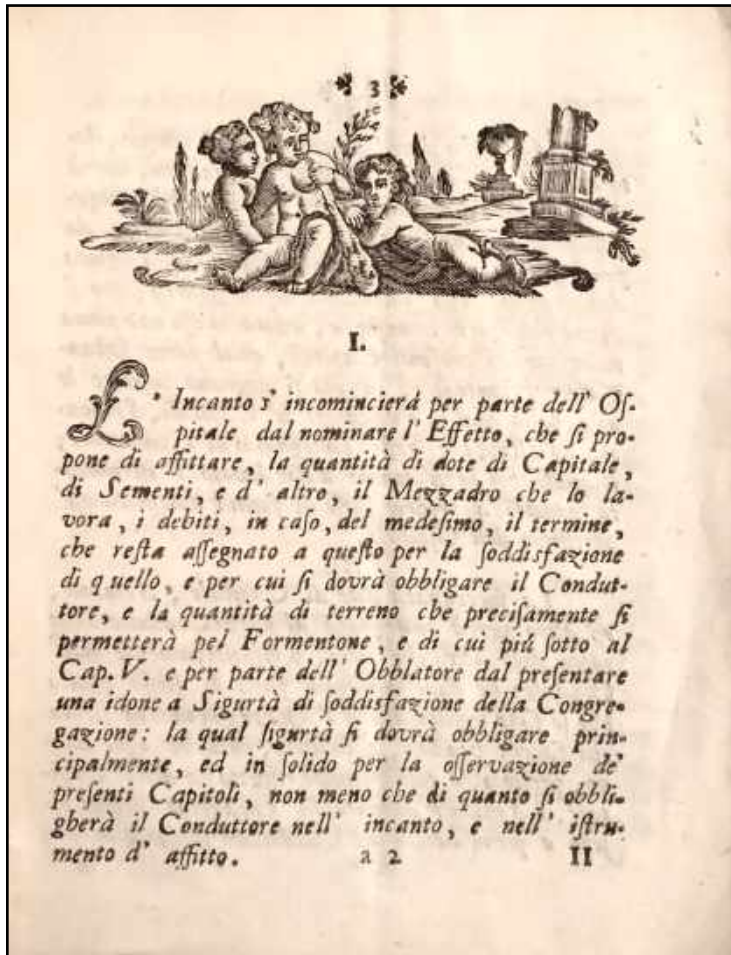 3
I.
L' Incanto s' incomincierá per parte dell' Oſ-
pitale dal nominare l' Effetto, che ſi pro-
pone di affittare, la quantità di dote di Capitale,
di Sementi, e d' altro, il Mezzadro che lo la-
vora, i debiti, in caſo, del medeſimo, il termine,
che reſta aſſegnato a queſto per la ſoddisfazione
di quello, e per cui ſi dovrà obbligare il Condut-
tore, e la quantità di terreno che preciſamente ſi
permetterà pel Formentone, e di cui piú ſotto al
Cap. V. e per parte dell' Obblatore dal preſentare
una idonea Sigurtà di ſoddisfazione della Congre-
gazione: la qual ſigurtà ſi dovrà obbligare prin-
cipalmente, ed in ſolido per la oſſervazione de'
preſenti Capitoli, non meno che di quanto ſi obbli-
gherà il Conduttore nell' incanto, e nell' iſtru-
mento d' affitto. a 2 II